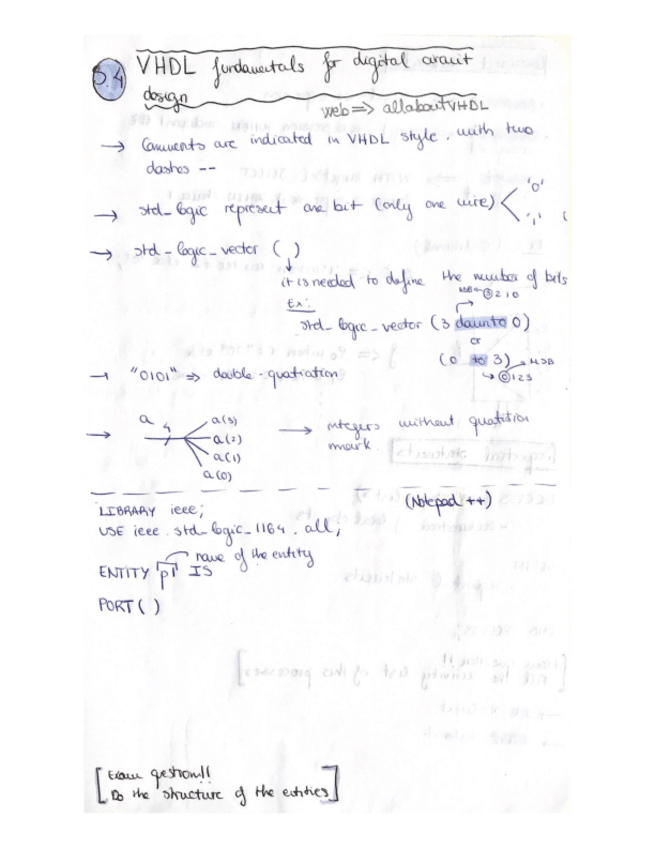 3.4 VHDL fundamentals for digital circuit
design
web => allaboutVHDL
→ Comments are indicated in VHDL style. with two
dashes --
→ std_logic represent one bit (only one wire) < '0'
'1'
→ std_logic_vector ( )
it is needed to define the number of bits
Ex:
MSB ← ③ 2 1 0
std_logic_vector (3 downto 0)
or
(0 to 3) → MSB
→ ⓪ 1 2 3
→ "0101" => double-quotiation
→ a 4 a(3)
a(2)
a(1)
a(0)
→ integers without quotition
mark.
(Notepad ++)
LIBRARY ieee;
USE ieee.std_logic_1164.all;
name of the entity
ENTITY p1 IS
PORT( )
[Exam qestion!!
Do the structure of the entities]